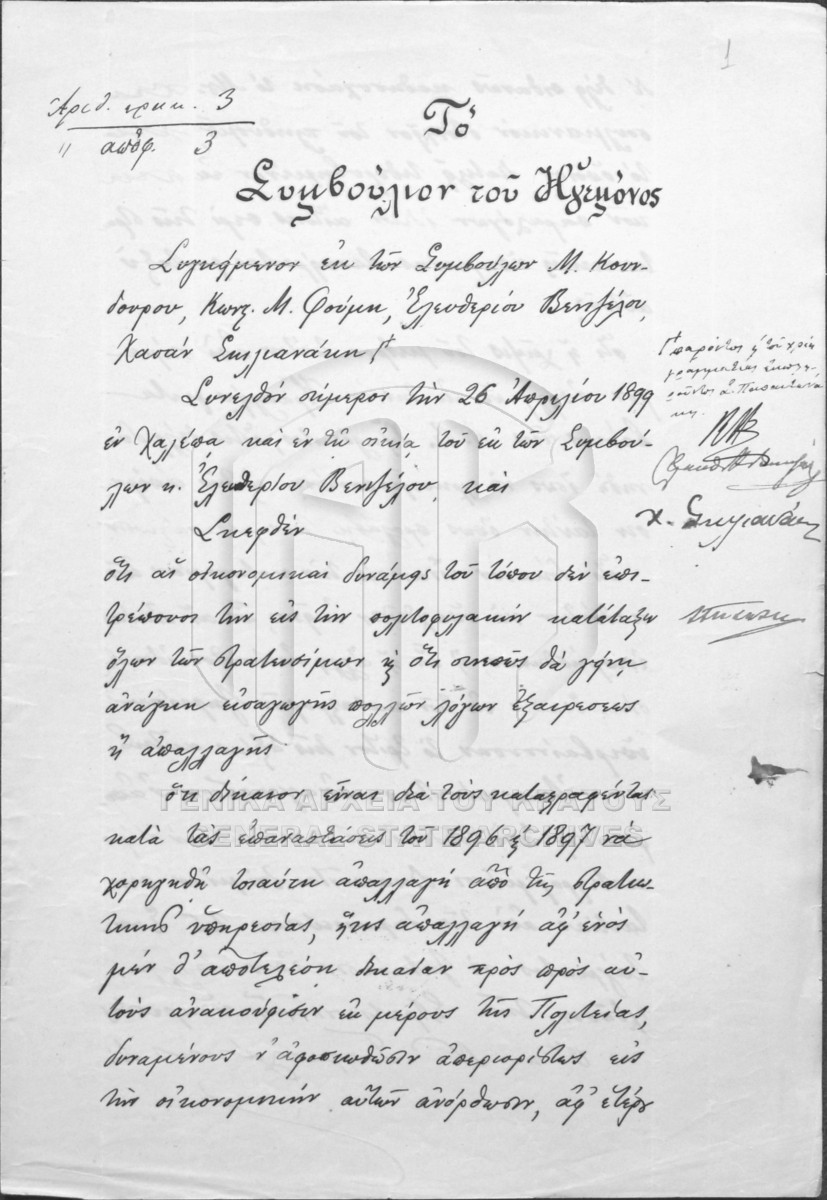 1
Ἀριθ. πρκτ. 3
〃 αποφ. 3
Τὸ
Συμβούλιον τοῦ Ἡγεμόνος
Συγκείμενον ἐκ τῶν Συμβούλων Μ. Κουν-
δούρου, Κωνς. Μ. Φούμη, Ἐλευθερίου Βενιζέλου,
Χασὰν Σκυλιανάκη
Συνελθὸν σήμερον τὴν 26 Ἀπριλίου 1899
ἐν Χαλέπᾳ καὶ ἐν τῇ οἰκίᾳ τοῦ ἐκ τῶν Συμβού-
λων κ. Ἐλευθερίου Βενιζέλου, καὶ
Σκεφθὲν
ὅτι αἱ οἰκονομικαὶ δυνάμεις τοῦ τόπου δὲν ἐπι-
τρέπουσι τὴν εἰς τὴν πολιτοφυλακὴν κατάταξιν
ὅλων τῶν στρατευσίμων κ ὅτι συνεπῶς θὰ γείνῃ
ἀνάγκη εἰσαγωγῆς πολλῶν λόγων ἐξαιρέσεως
ἢ ἀπαλλαγῆς
ὅτι δίκαιον εἶναι διὰ τοὺς καταγραφέντας
κατὰ τὰς ἐπαναστάσεις τοῦ 1896 κ 1897 νὰ
χορηγηθῇ τοιαύτη ἀπαλλαγὴ ἀπὸ τῆς στρατιω-
τικῆς ὑπηρεσίας, ἥτις ἀπαλλαγὴ ἀφ' ἑνὸς
μὲν θ' ἀποτελέσῃ δικαίαν πρὸς πρὸς αὐ-
τοὺς ἀνακούφισιν ἐκ μέρους τῆς Πολιτείας,
δυναμένους ν' ἀφοσιωθῶσιν ἀπεριορίστως εἰς
τὴν οἰκονομικὴν αὐτῶν ἀνόρθωσιν, ἀφ' ἑτέρου
παρόντος κ τοῦ χρέη
γραμματέως ἐκπλη-
ροῦντος
Χ. Σκυλιανάκη
ΓΕΝΙΚΑ ΑΡΧΕΙΑ ΤΟΥ ΚΡΑΤΟΥΣ
GENERAL STATE ARCHIVES